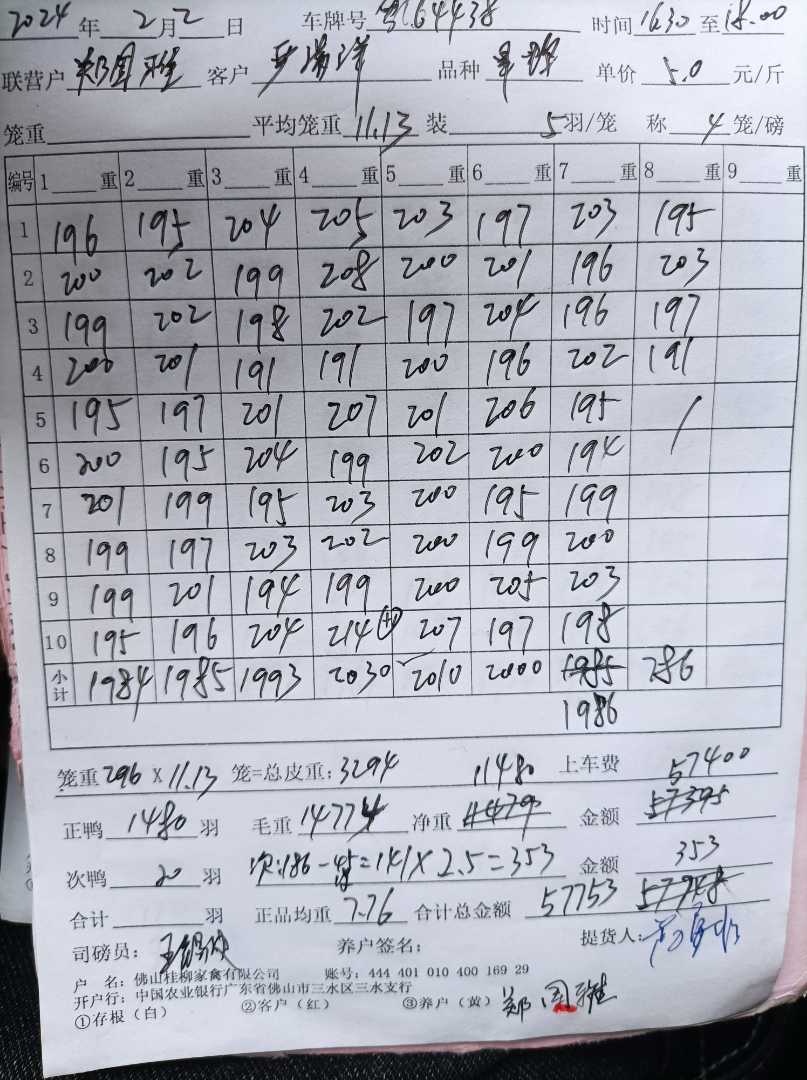 2024年2月2日 车牌号 粤L64438 时间16.30至18.00
联营户 郑国雅 客户 品种 单价 5.0 元/斤
笼重 平均笼重 11.13 装 5 羽/笼 称 4 笼/磅
编号 1 重 2 重 3 重 4 重 5 重 6 重 7 重 8 重 9 重
1 196 195 204 205 203 197 203 195
2 200 202 199 208 200 201 196 203
3 199 202 198 202 197 204 196 197
4 200 201 191 191 200 196 202 191
5 195 197 201 207 201 206 195 /
6 200 195 204 199 202 200 194
7 201 199 195 203 200 195 199
8 199 197 203 202 200 199 200
9 199 201 194 199 200 205 203
10 195 196 204 214 207 197 198
小计 1984 1985 1993 2030 2010 2000 1985 786
1986
笼重296×11.13笼=总皮重:3294 11480 上车费 57400
正鸭 1480 羽 毛重 14774 净重 11479 金额 57395
次鸭 20 羽 次:186-45=141×2.5=353 金额 353
合计 羽 正品均重 7.76 合计总金额 57753 57748
司磅员: 养户签名: 提货人:
户 名:佛山桂柳家禽有限公司 账号:444 401 010 400 169 29
开户行:中国农业银行广东省佛山市三水区三水支行
①存根(白) ②客户(红) ③养户(黄) 郑国雅